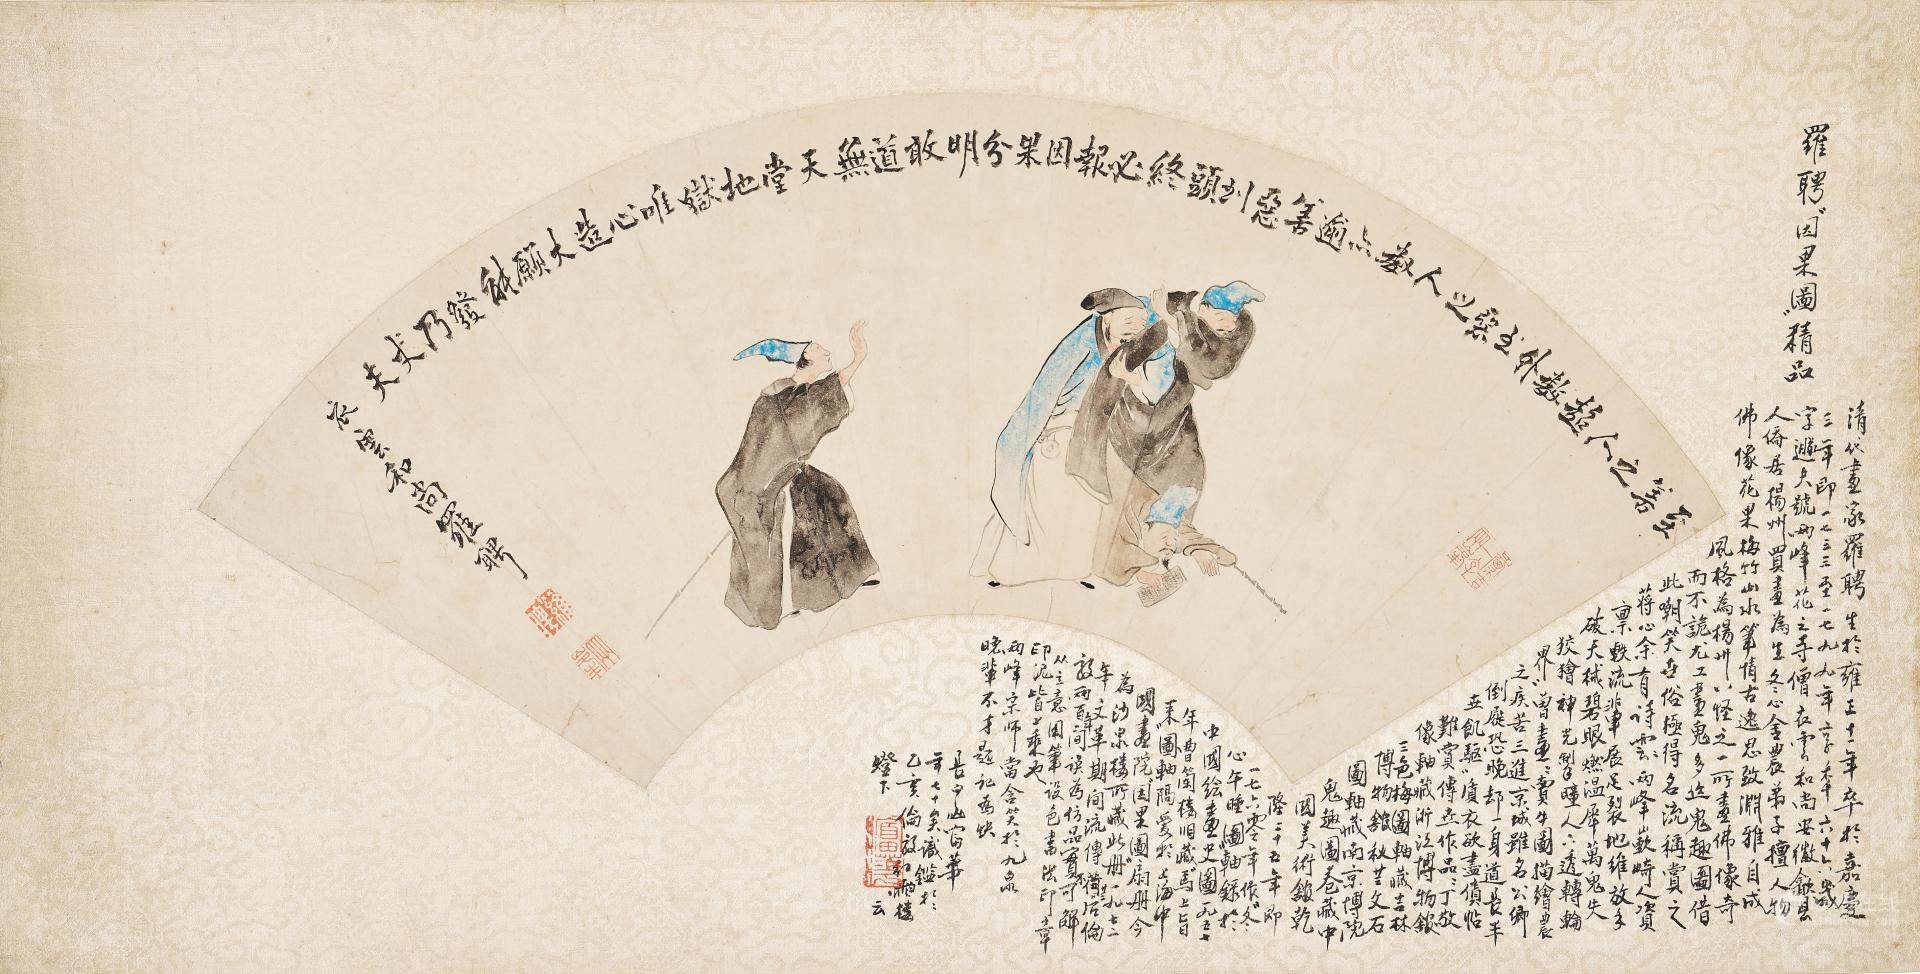 至善之人超教外至惡之人教亦逾善惡到頭終必報因果分明敢道無天堂地獄唯心造大願能發乃丈夫
衣雲和尚羅聘
羅聘"因果圖"精品
清代畫家羅聘生於雍正十一年卒於嘉慶
三年即一七三三至一七九九年享年六十六歲
字遯夫號兩峰花之寺僧衣雲和尚安徽歙縣
人僑居揚州買畫為生冬心金農弟子擅人物
佛像花果梅竹山水筆情古逸思致淵雅自成
風格為揚州八怪之一所畫佛像奇
而不詭尤工畫鬼多鬼趣圖借
此嘲笑世俗極得名流稱賞之
蔣心余有詩云:兩峰嶔崎人資
禀軼流輩展足裂地維放手
破天械碧眼燃溫犀萬鬼失
狡獪神光射瞳人六透轉輪
界"曾畫:賣牛圖描繪農
之疾苦三進京城雖名公卿
倒屣恐晚却一身道長年
世飢驅"衣欲盡債
難賞傳世作品:丁敬
像軸藏浙江博物館
三色梅圖軸藏吉林
博物館秋文石
圖軸藏南京博院
鬼趣圖卷藏中
國美術館乾
隆二十五年即
一七六零年作"冬
心午睡圖"軸錄於
中國繪畫史圖一九五七
年曹筒樓旧藏"馬上
來"圖軸隔愛於上海中
國畫院因果圖扇册今
為沙泉樓所藏此册一九七二
年文革期间流傳倫
敦兩百年间誤為仿品實不可解
从立意因筆設色書法印章
印泥皆上乘也
兩峰宗師當含笑於九泉
晚輩不才題記为快
長白山富華
年七十矣識鑑於
乙亥倫敦樓
燈下 云